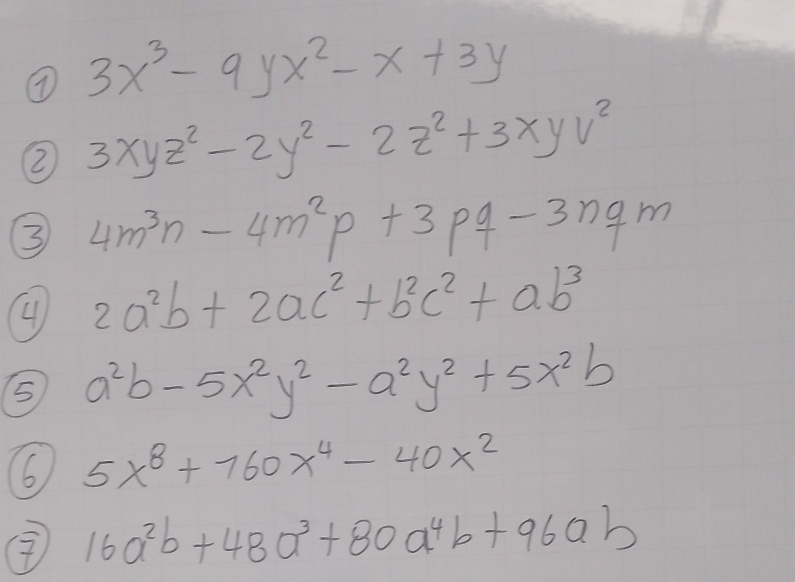 ① 3x³ - 9yx² - x + 3y
② 3xyz² - 2y² - 2z² + 3xyv²
③ 4m³n - 4m²p + 3pq - 3nqm
④ 2a²b + 2ac² + b²c² + ab³
⑤ a²b - 5x²y² - a²y² + 5x²b
⑥ 5x⁸ + 160x⁴ - 40x²
⑦ 16a²b + 48a³ + 80a⁴b + 96ab